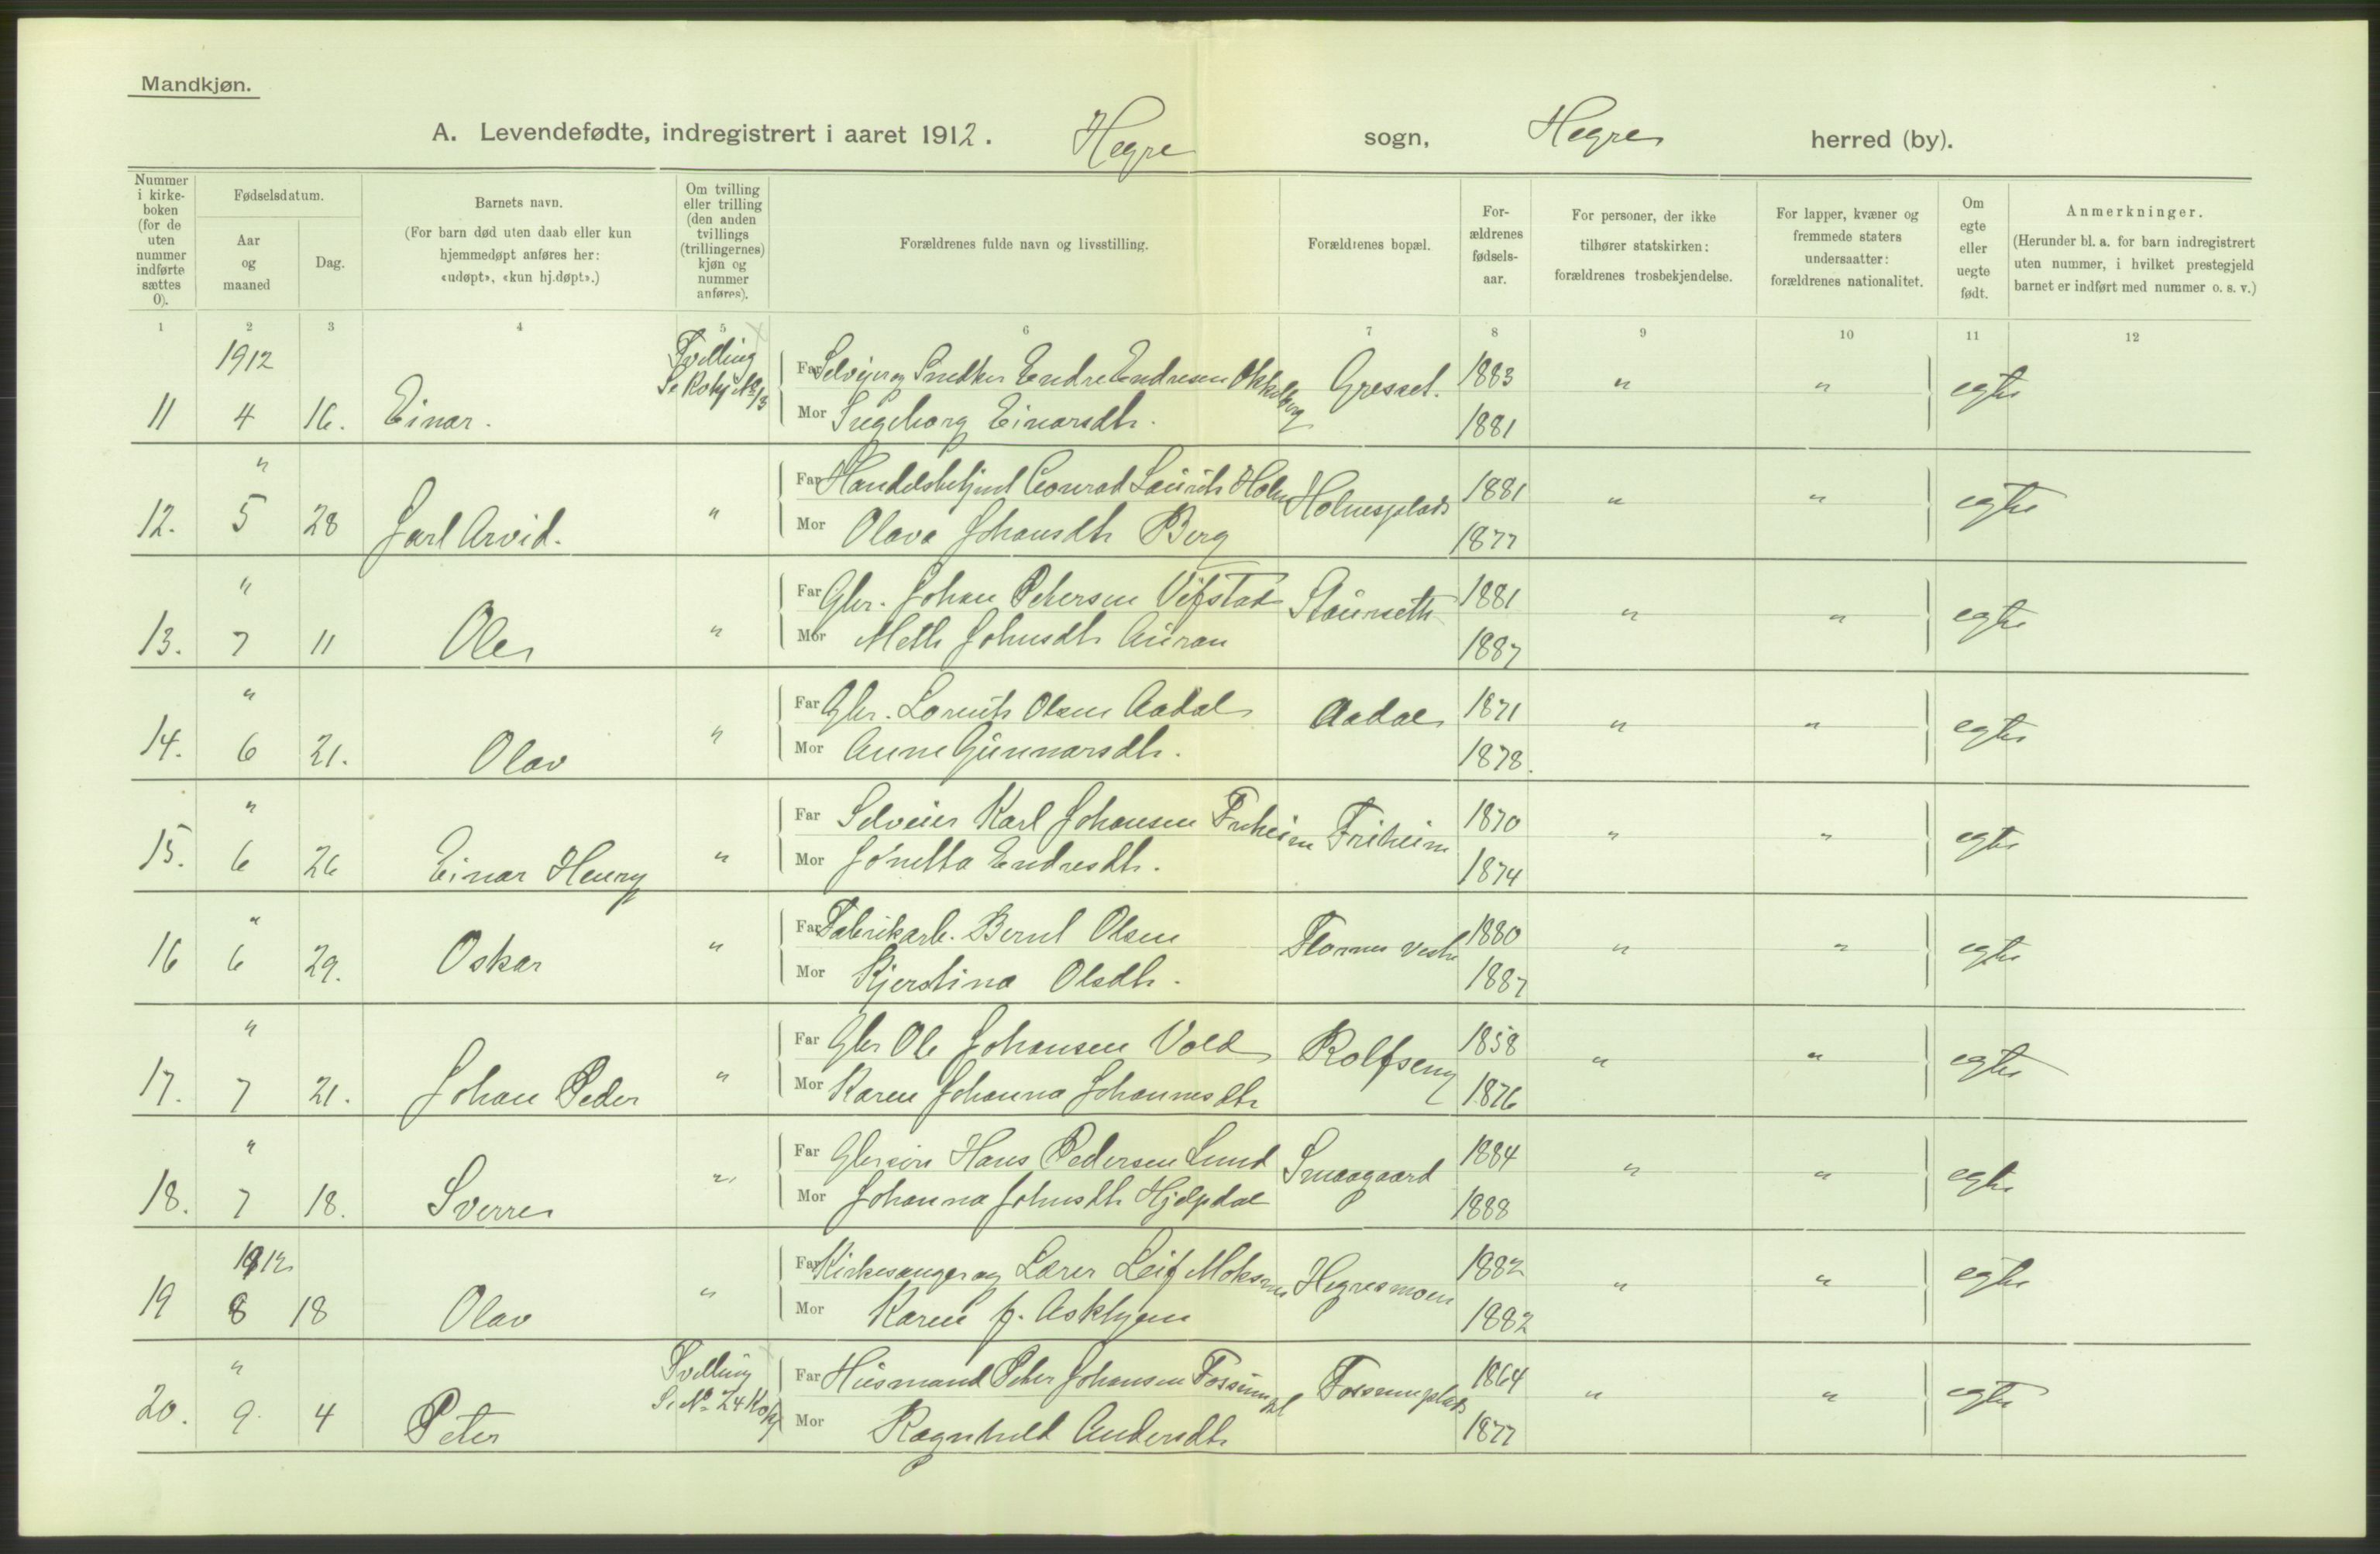 Mandkjøn.
A. Levendefødte, indregistrert i aaret 1912. Hegre sogn, Hegre herred (by).
Nummer i kirke-boken (for de uten nummer indførte sættes 0).
Fødselsdatum.
Aar og maaned
Dag.
Barnets navn.
(For barn død uten daab eller kun hjemmedøpt anføres her: «udøpt», «kun hj.døpt».)
Om tvilling eller trilling (den anden tvillings (trillingernes) kjøn og nummer anføres).
Forældrenes fulde navn og livsstilling.
Forældrenes bopæl.
For-ældrenes fødsels-aar.
For personer, der ikke tilhører statskirken: forældrenes trosbekjendelse.
For lapper, kvæner og fremmede staters undersaatter: forældrenes nationalitet.
Om egte eller uegte født.
Anmerkninger.
(Herunder bl. a. for barn indregistrert uten nummer, i hvilket prestegjeld barnet er indført med nummer o. s. v.)
1 2 3 4 5 6 7 8 9 10 11 12
1912 Tvilling
Far Selveier og Snedker Endre Endresen Okkelberg Gresset. 1883 " " egte
11 4 16. Einar. Mor Ingeborg Einarsdtr. 1881
" Far Handelsbetjent Conrad Laurits Holm Holmesplads 1881 " " egte
12. 5 28 Jarl Arvid. " Mor Olava Johansdtr Berg 1877
" Far Gbr. Johan Petersen Vifstad 1881 " " egte
13. 7 11 Ole " Mor Meth Johnsdtr Auran 1887
" Far Gbr. Lorents Olsen Aadal Aadal 1871 " " egte
14. 6 21. Olav " Mor Anne Gunnarsdtr. 1878.
" Far Selveier Karl Johansen Friheim Friheim 1870 " " egte
15. 6 26 Einar Henry " Mor Jonetta Endresdtr. 1874
" Far Fabrikarb. Bernt Olsen Flornes vestre 1880 " " egte
16 6 29. Oskar " Mor Kjerstina Olsdtr. 1887
" Far Gbr Ole Johansen Vold Rolfseng 1858 " " egte
17. 7 21. Johan Peder " Mor Karen Johanna Johannesdtr 1876
" Far Hans Pedersen Lund Smaagaard 1884 " " egte
18. 7 18. Sverre " Mor Johanna Johnsdtr Hjelpdal 1888
1912 Far Kirkesanger og Lærer Leif Moksnes Hegresmoen 1882 " " egte
19 8 18 Olav " Mor Karen J. 1882
" Tvilling Far Husmand Peter Johansen Fossumpl Fossumplads 1864 " " egte
20. 9. 4 Peter Se No 24 Kvkj Mor Ragnhild Andersdtr 1877